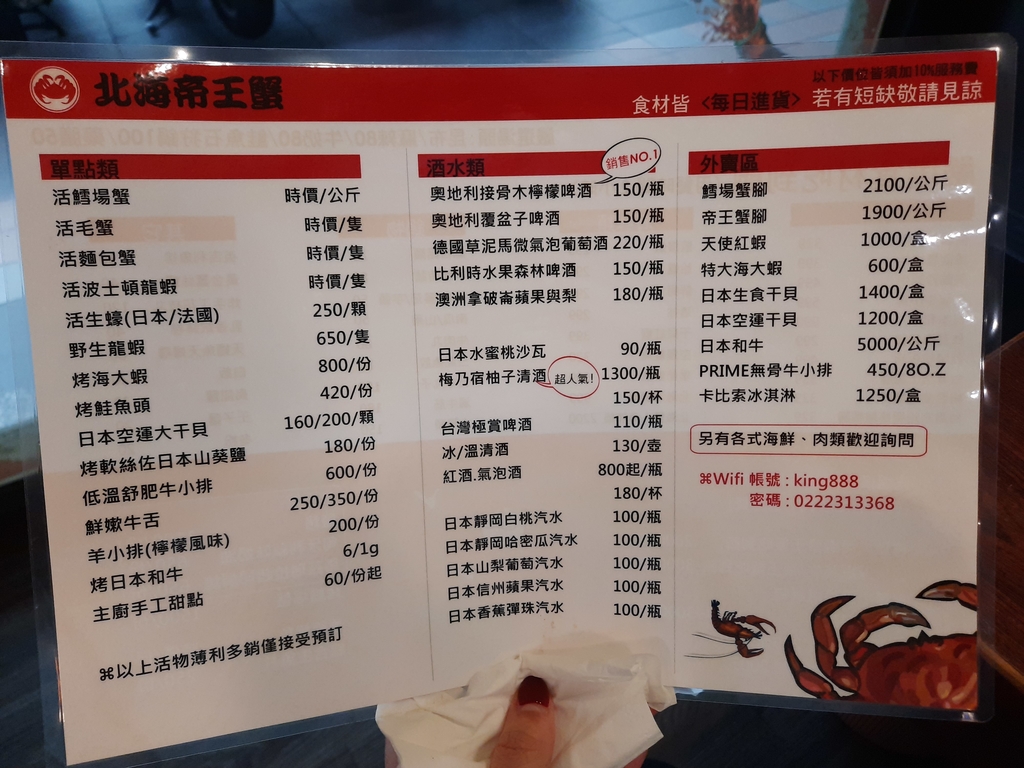 北海帝王蟹
食材皆 <每日進貨>
以下價位皆須加10%服務費
若有短缺敬請見諒
單點類
活鱈場蟹 時價/公斤
活毛蟹 時價/隻
活麵包蟹 時價/隻
活波士頓龍蝦 時價/隻
活生蠔(日本/法國) 250/顆
野生龍蝦 650/隻
烤海大蝦 800/份
烤鮭魚頭 420/份
日本空運大干貝 160/200/顆
烤軟絲佐日本山葵鹽 180/份
低溫舒肥牛小排 600/份
鮮嫩牛舌 250/350/份
羊小排(檸檬風味) 200/份
烤日本和牛 6/1g
主廚手工甜點 60/份起
⌘以上活物薄利多銷僅接受預訂
酒水類
銷售NO.1
奧地利接骨木檸檬啤酒 150/瓶
奧地利覆盆子啤酒 150/瓶
德國草泥馬微氣泡葡萄酒 220/瓶
比利時水果森林啤酒 150/瓶
澳洲拿破崙蘋果與梨 180/瓶
日本水蜜桃沙瓦 90/瓶
梅乃宿柚子清酒 超人氣! 1300/瓶
150/杯
台灣極賞啤酒 110/瓶
冰/溫清酒 130/壺
紅酒.氣泡酒 800起/瓶
180/杯
日本靜岡白桃汽水 100/瓶
日本靜岡哈密瓜汽水 100/瓶
日本山梨葡萄汽水 100/瓶
日本信州蘋果汽水 100/瓶
日本香蕉彈珠汽水 100/瓶
外賣區
鱈場蟹腳 2100/公斤
帝王蟹腳 1900/公斤
天使紅蝦 1000/盒
特大海大蝦 600/盒
日本生食干貝 1400/盒
日本空運干貝 1200/盒
日本和牛 5000/公斤
PRIME無骨牛小排 450/8O.Z
卡比索冰淇淋 1250/盒
另有各式海鮮、肉類歡迎詢問
⌘Wifi 帳號 : king888
密碼 : 0222313368